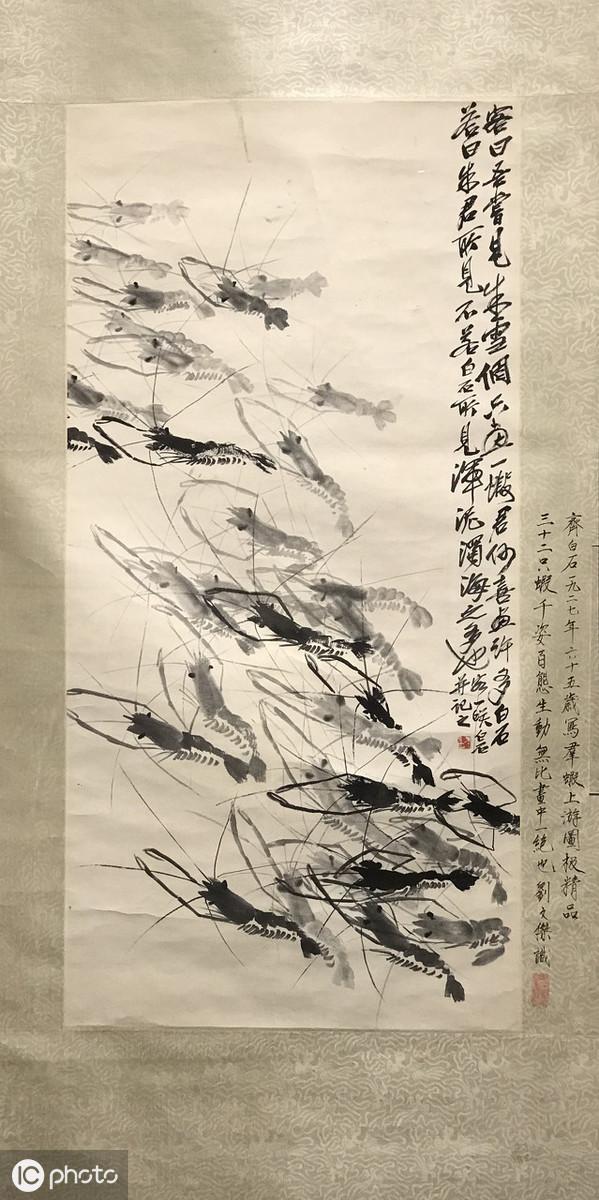 客曰吾嘗見朱雪個只畫一君何喜画許多白石
荅曰朱君所見不若白石所見渾泥濁海之多也
客一咲白石
并記之
齊白石一九二七年六十五歲寫羣蝦上游圖極精品
三十二只蝦千姿百態生動無比畫中一絕也劉文傑識
IC photo